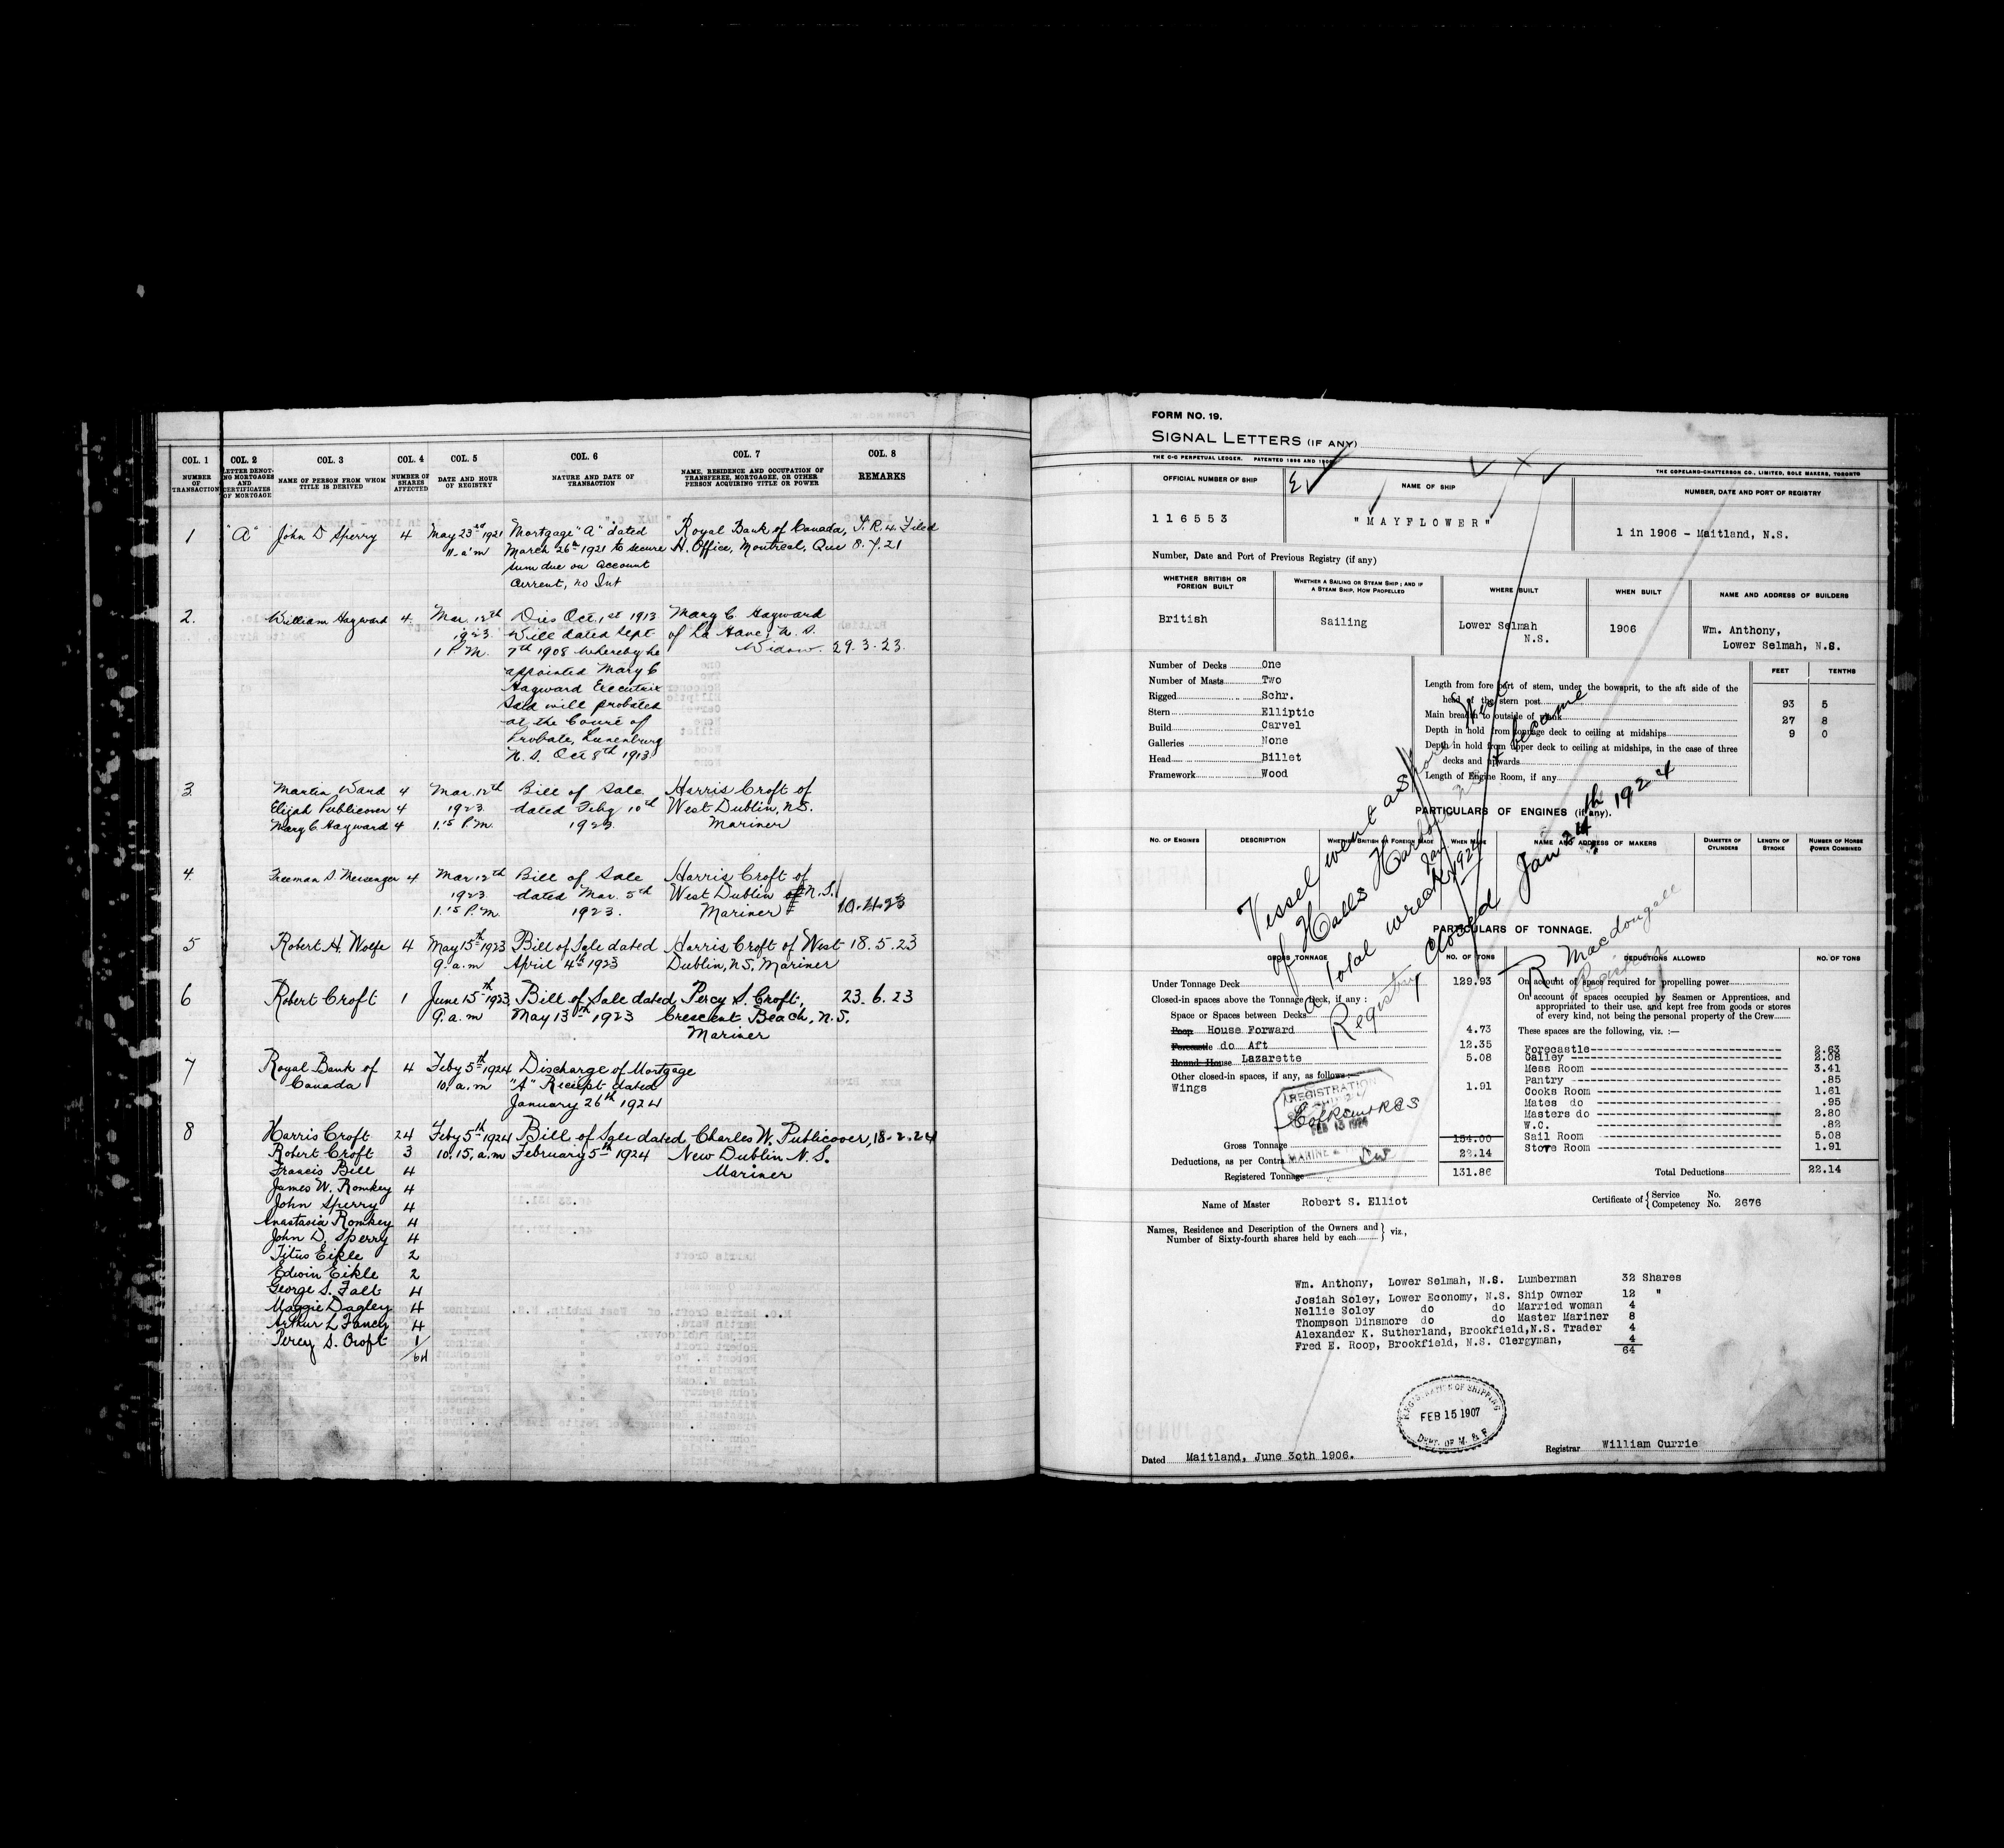 COL. 1 COL. 2 COL. 3 COL. 4 COL. 5 COL. 6 COL. 7 COL. 8
NUMBER OF TRANSACTION
LETTER DENOT-NG MORTGAGES AND CERTIFICATES OF MORTGAGE
NAME OF PERSON FROM WHOM TITLE IS DERIVED
NUMBER OF SHARES AFFECTED
DATE AND HOUR OF REGISTRY
NATURE AND DATE OF TRANSACTION
NAME, RESIDENCE AND OCCUPATION OF TRANSFEREE, MORTGAGEE, OR OTHER PERSON ACQUIRING TITLE OR POWER
REMARKS
1 "A" John D Sperry 4 May 23rd 1921 Mortgage "A" dated Royal Bank of Canada, T.R.4. Filed
11 a.m March 26th 1921 to secure H. Office, Montreal, Que 8.7.21
sum due on account
current, no Int
2. William Hayward 4. Mar. 12th Dies Oct. 1st 1913 Mary C Hayward
1923. Will dated Sept of La Have, N.S.
1 P.M. 7th 1908 whereby he Widow. 29.3.23.
appointed Mary C
Hayward Executrix
Said will probated
at the Court of
Probate, Lunenburg
N.S. Oct 8th 1913
3. Martin Ward 4 Mar. 12th Bill of Sale Harris Croft of
Elijah Publicover 4 1923. dated Feby 10th West Dublin, N.S.
Mary C Hayward 4 1.15 P.M. 1923. Mariner
4. Freeman S Messenger 4 Mar 12th Bill of Sale Harris Croft of
1923. dated Mar. 5th West Dublin N.S.
1.15 P.M. 1923. Mariner 10.4.23
5 Robert H. Wolfe 4 May 15th 1923 Bill of Sale dated Harris Croft of West 18.5.23
9. a.m April 4th 1923 Dublin, N.S. Mariner
6 Robert Croft 1 June 15th 1923, Bill of Sale dated Percy S. Croft, 23.6.23
9. a.m May 13th 1923 Crescent Beach, N.S.
Mariner
7 Royal Bank of 4 Feby 5th 1924 Discharge of Mortgage
Canada 10, a.m "A" Receipt dated
January 26th 1924
8 Harris Croft 24 Feby 5th 1924 Bill of Sale dated Charles W. Publicover, 18-2-24
Robert Croft 3 10.15, a.m February 5th 1924 New Dublin N.S.
Francis Bill 4 Mariner
James W. Romkey 4
John Sperry 4
Anastasia Romkey 4
John D. Sperry 4
Titus Eikle 2
Edwin Eikle 2
George S. Falt 4
Maggie Dagley 4
Arthur L Fancy 4
Percy S. Croft 1
/64
FORM NO. 19.
SIGNAL LETTERS (IF ANY)
THE C-C PERPETUAL LEDGER. PATENTED 1896 AND
THE COPELAND-CHATTERSON CO., LIMITED, SOLE MAKERS, TORONTO
OFFICIAL NUMBER OF SHIP NAME OF SHIP NUMBER, DATE AND PORT OF REGISTRY
116553 "MAYFLOWER" 1 in 1906 - Maitland, N.S.
Number, Date and Port of Previous Registry (if any)
WHETHER BRITISH OR FOREIGN BUILT
WHETHER A SAILING OR STEAM SHIP; AND IF A STEAM SHIP, HOW PROPELLED
WHERE BUILT WHEN BUILT NAME AND ADDRESS OF BUILDERS
British Sailing Lower Selmah N.S. 1906 Wm. Anthony,
Lower Selmah, N.S.
FEET TENTHS
Number of Decks One
Number of Masts Two
Rigged Schr.
Stern Elliptic
Build Carvel
Galleries None
Head Billet
Framework Wood
Length from fore part of stem, under the bowsprit, to the aft side of the
head of the stern post 93 5
Main breadth to outside of plank 27 8
Depth in hold from tonnage deck to ceiling at midships 9 0
Depth in hold from upper deck to ceiling at midships, in the case of three
decks and upwards
Length of Engine Room, if any
PARTICULARS OF ENGINES (if any).
NO. OF ENGINES DESCRIPTION WHETHER BRITISH OR FOREIGN MADE WHEN MADE NAME AND ADDRESS OF MAKERS DIAMETER OF CYLINDERS LENGTH OF STROKE NUMBER OF HORSE POWER COMBINED
Vessel went ashore
of Halls Harbor
a total wreck
become
Registry closed Jan 1924
R Macdougall
Registrar
PARTICULARS OF TONNAGE.
GROSS TONNAGE NO. OF TONS DEDUCTIONS ALLOWED NO. OF TONS
Under Tonnage Deck 129.93
Closed-in spaces above the Tonnage Deck, if any:
Space or Spaces between Decks
Poop House Forward 4.73
Forecastle do Aft 12.35
Round House Lazarette 5.08
Other closed-in spaces, if any, as follows:
Wings 1.91
Gross Tonnage 154.00
Deductions, as per Contra 22.14
Registered Tonnage 131.86
On account of space required for propelling power
On account of spaces occupied by Seamen or Apprentices, and
appropriated to their use, and kept free from goods or stores
of every kind, not being the personal property of the Crew
These spaces are the following, viz.:—
Forecastle 2.63
Galley 2.08
Mess Room 3.41
Pantry .85
Cooks Room 1.61
Mates do .95
Masters do 2.80
W.C. .82
Sail Room 5.08
Stove Room 1.91
Total Deductions 22.14
REGISTRATION
FEB 13 1924
MARINE
Name of Master Robert S. Elliot Certificate of { Service No. Competency No. 2676
Names, Residence and Description of the Owners and
Number of Sixty-fourth shares held by each } viz.,
Wm. Anthony, Lower Selmah, N.S. Lumberman 32 Shares
Josiah Soley, Lower Economy, N.S. Ship Owner 12 "
Nellie Soley do do Married woman 4
Thompson Dinsmore do do Master Mariner 8
Alexander K. Sutherland, Brookfield,N.S. Trader 4
Fred E. Roop, Brookfield, N.S. Clergyman, 4
64
REGISTRATION OF SHIPPING
FEB 15 1907
DEPT. OF M. & F.
Dated Maitland, June 30th 1906.
Registrar William Currie